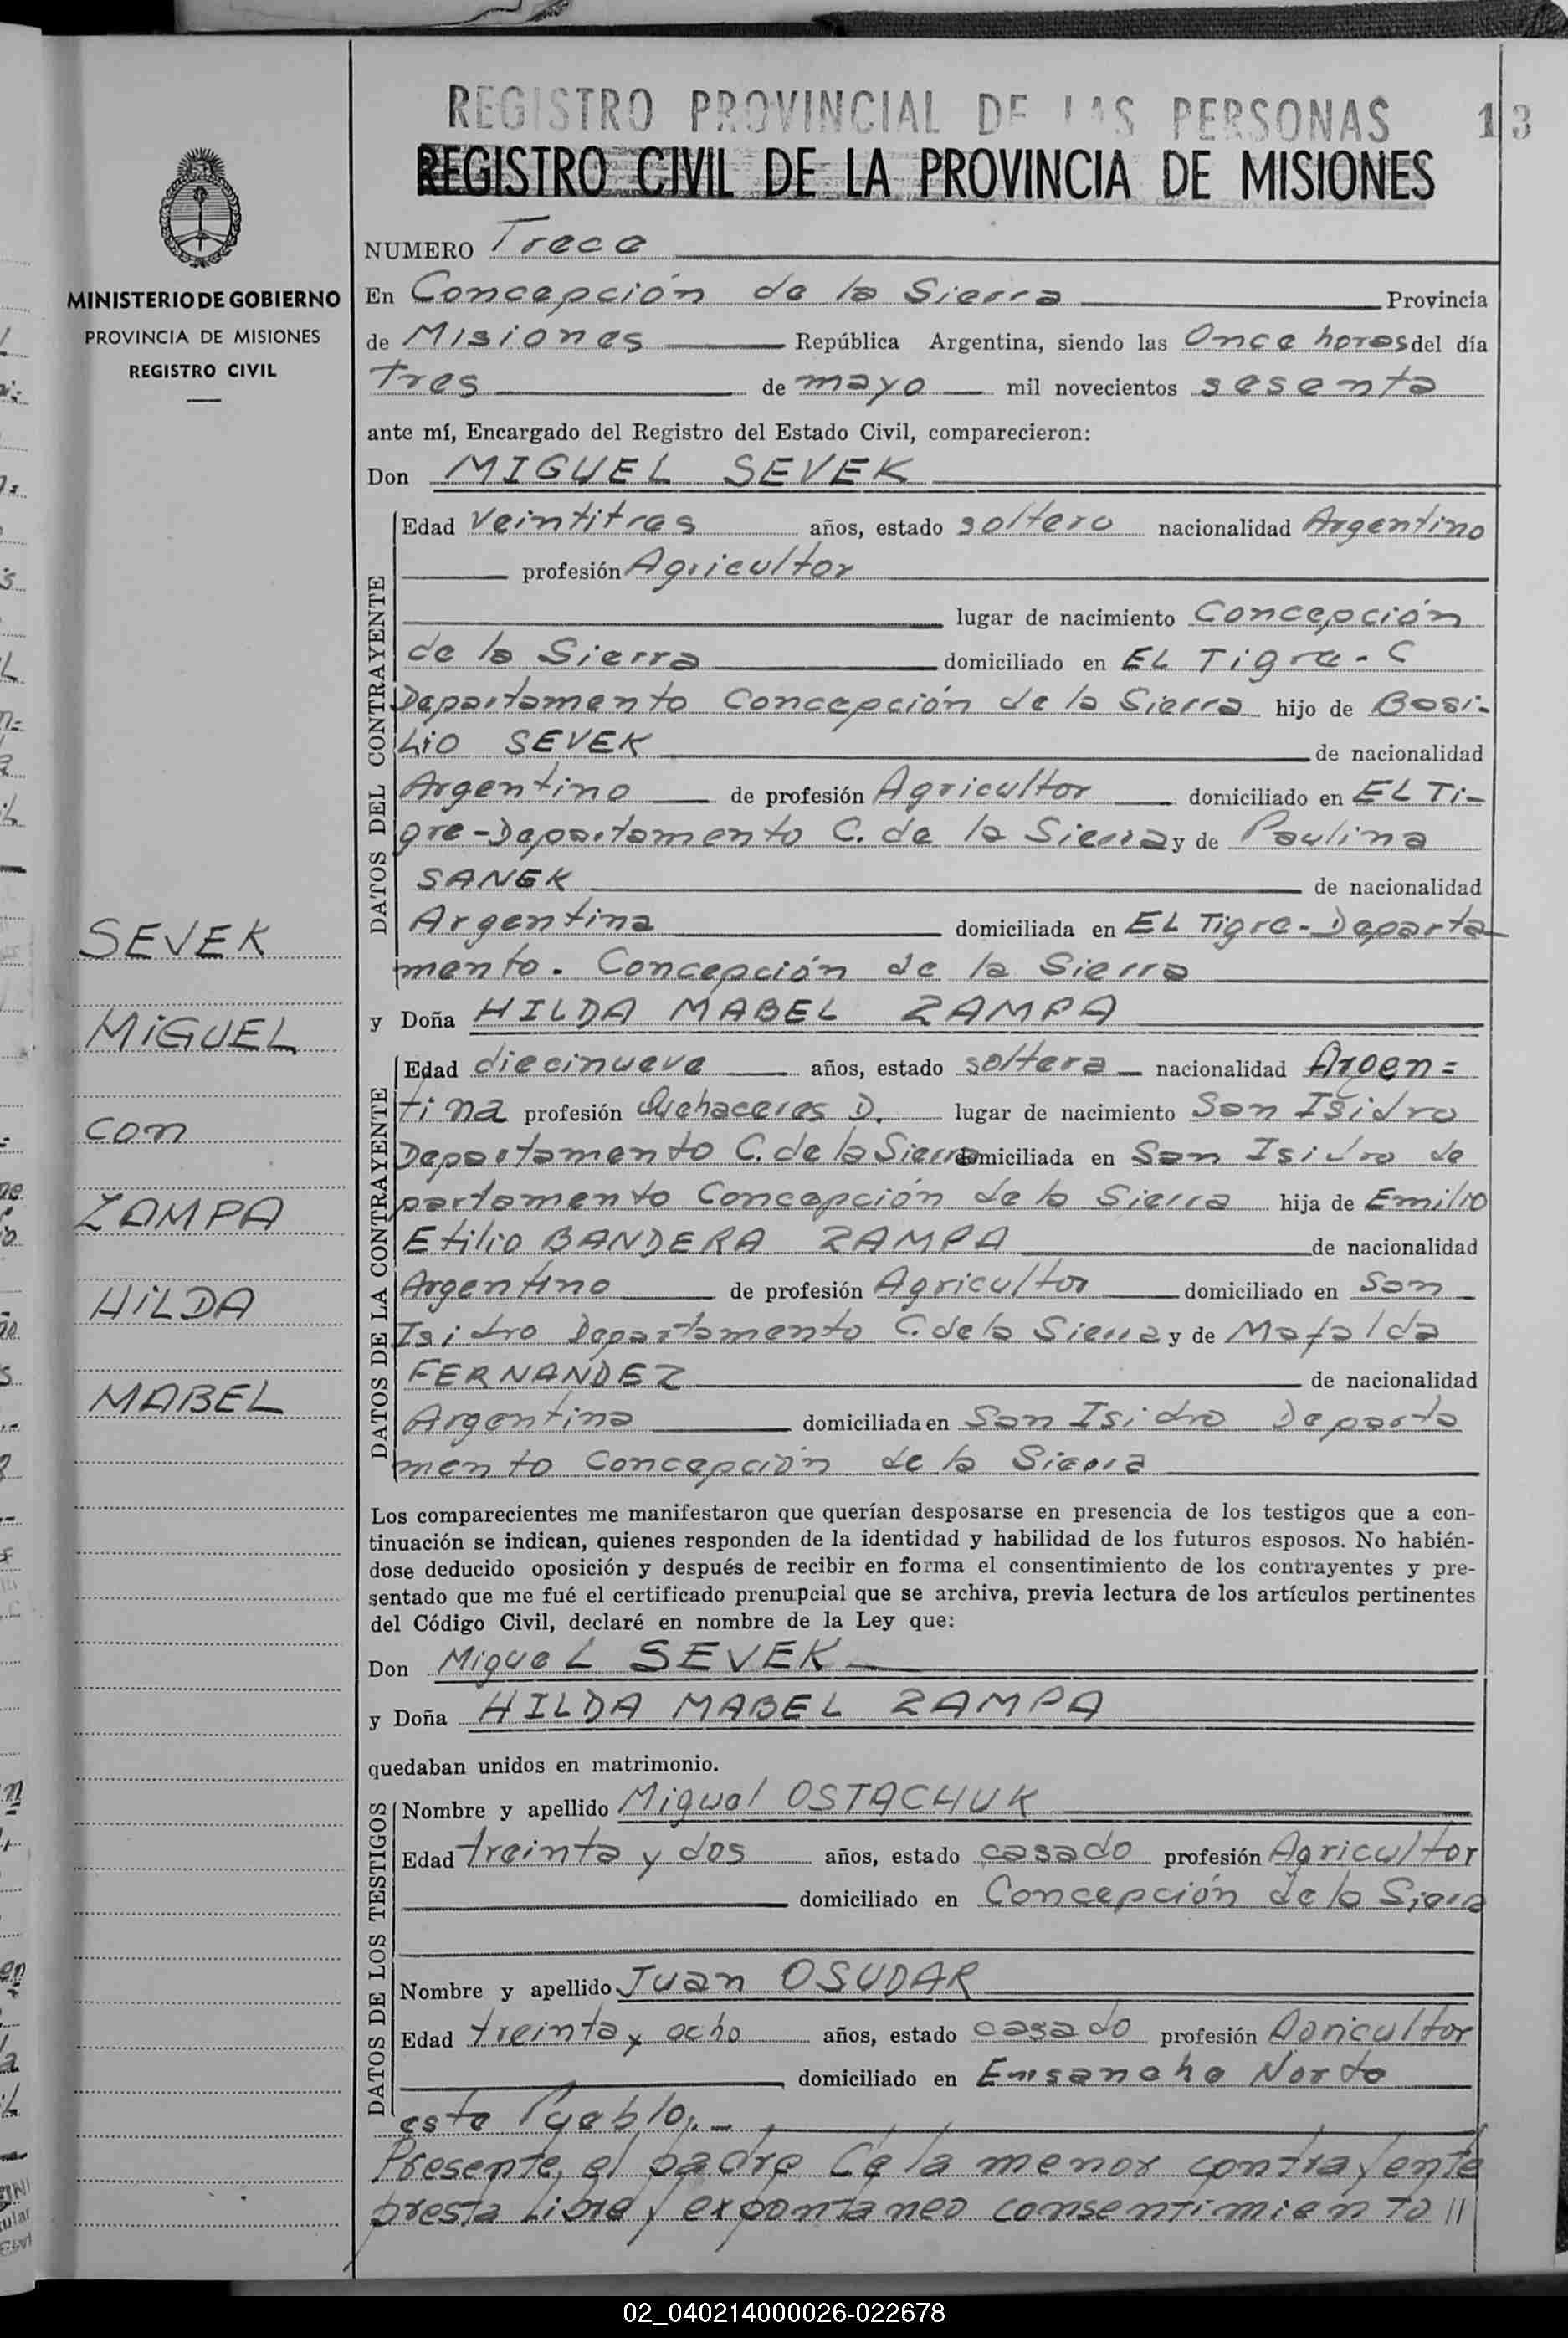 REGISTRO PROVINCIAL DE LAS PERSONAS 13
REGISTRO CIVIL DE LA PROVINCIA DE MISIONES
MINISTERIO DE GOBIERNO
PROVINCIA DE MISIONES
REGISTRO CIVIL
SEVEK
MIGUEL
con
ZAMPA
HILDA
MABEL
NUMERO Trece
En Concepción de la Sierra Provincia
de Misiones República Argentina, siendo las Once horas del día
tres de mayo mil novecientos sesenta
ante mí, Encargado del Registro del Estado Civil, comparecieron:
Don MIGUEL SEVEK
DATOS DEL CONTRAYENTE
Edad veintitres años, estado soltero nacionalidad Argentino
profesión Agricultor
lugar de nacimiento Concepción
de la Sierra domiciliado en EL Tigre - C
Departamento Concepción de la Sierra hijo de Basi-
Lio SEVEK de nacionalidad
Argentino de profesión Agricultor domiciliado en EL Ti-
gre-Departamento C. de la Sierra y de Paulina
SANEK de nacionalidad
Argentina domiciliada en EL Tigre-Departa-
mento. Concepción de la Sierra
y Doña HILDA MABEL ZAMPA
DATOS DE LA CONTRAYENTE
Edad diecinueve años, estado soltera nacionalidad Argen=
tina profesión Quehaceres D. lugar de nacimiento San Isidro
Departamento C. de la Sierra domiciliada en San Isidro de
partamento Concepción de la Sierra hija de Emilio
Etilio BANDERA ZAMPA de nacionalidad
Argentino de profesión Agricultor domiciliado en San
Isidro Departamento C. de la Sierra y de Mafalda
FERNANDEZ de nacionalidad
Argentina domiciliada en San Isidro Departa
mento Concepción de la Sierra
Los comparecientes me manifestaron que querían desposarse en presencia de los testigos que a con-
tinuación se indican, quienes responden de la identidad y habilidad de los futuros esposos. No habién-
dose deducido oposición y después de recibir en forma el consentimiento de los contrayentes y pre-
sentado que me fué el certificado prenupcial que se archiva, previa lectura de los artículos pertinentes
del Código Civil, declaré en nombre de la Ley que:
Don Miguel SEVEK
y Doña HILDA MABEL ZAMPA
quedaban unidos en matrimonio.
DATOS DE LOS TESTIGOS
Nombre y apellido Miguel OSTACHUK
Edad treinta y dos años, estado casado profesión Agricultor
domiciliado en Concepción de la Sierra
Nombre y apellido Juan OSUDAR
Edad treinta y ocho años, estado casado profesión Agricultor
domiciliado en Ensanche Norte
este Pueblo.-
Presente, el padre de la menor contrayente
presta Libre y expontaneo consentimiento //
02_040214000026-022678